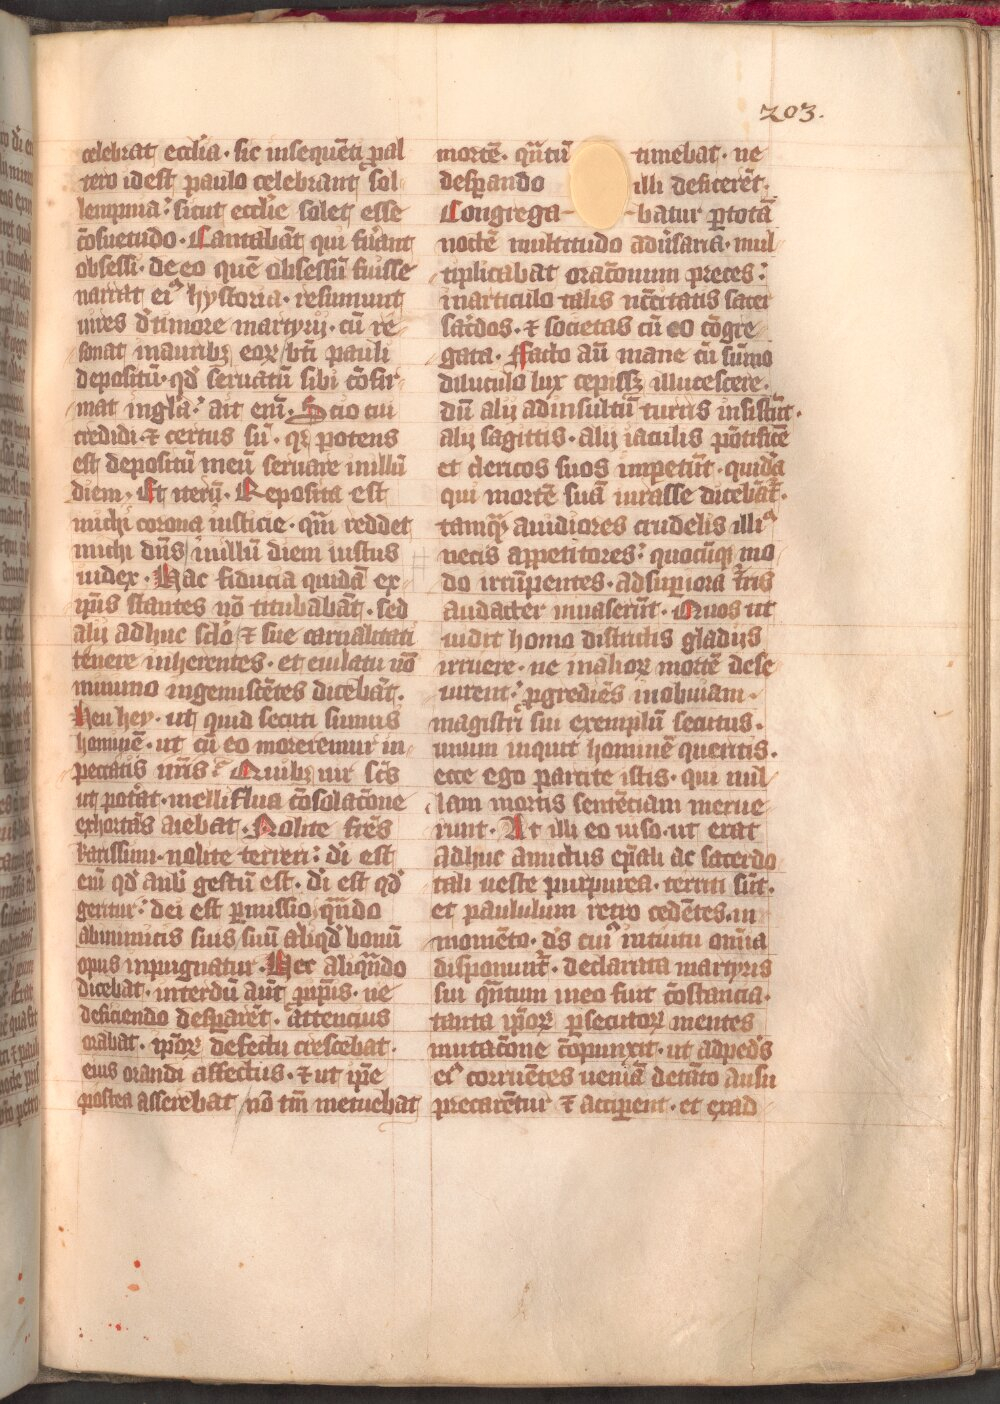 203.
celebrat eccl̄ia · sic insequēti pal
tero idest paulo celebrant sol
lempnia: sicut ecclīe solet esse
cōsuetudo · Cantabāt qui fūant
obsessi · de eo quē obsessū fuisse
narrat ei⁹ hystoria · resumunt
uires d̄ timore martyrij · cū re
sonat in auribꝫ eoꝝ bt̄i pauli
depositū · qd̄ seruatū sibi cōfir
mat in gl̄ia: ait eni̅ · Scio cui
credidi · ⁊ certus sū · qꝫ potens
est depositū meū seruare in illū
diem · Et iterū · Reposita est
michi corona iusticie · qm̄ reddet
michi dn̄s in illū diem iustus
iudex · Hac fiducia quidā ex
ip̄is stantes nō titubabāt · sed
alij adhuc sclō ⁊ sue carnalitati
tenere inherentes · et eiulatu nō
minimo ingemiscētes dicebāt ·
Heu hey · ut quid secuti sumus
hominē · ut cū eo moreremur in
peccatis nr̄is? Quibꝫ uir sc̄s
ut poťat · melliflua cōsolac̄one
exhortās aiebat · Nolite frēs
karissimi · nolite terreri: di est
eni̅ qd̄ aub̄ gestū est · di est qd̄
geritur: dei est p̱missio qn̄do
ab inimicis suis suū aliqd̄ bonū
opus inpugnatur · Hec aliqn̄do
dicebat · interdū aūt p̱ ip̄is · ne
deficiendo desp̱arēt · attencius
orabat · ip̄oꝝ defectu crescebat ·
eius orandi affectus · ⁊ ut ip̄e
postea asserebat nō tm̄ metuebat
mortē · qn̄tū timebat · ne
desp̱ando illi deficerēt ·
Congrega-batur p̱ totā
noctē multitudo adūsaria · mul
tiplicabat orac̄onum preces:
in articulo talis nc̄c̄itatis sacer
sac̄dos · ⁊ societas cū eo cōgre
gata · Facto aū mane cū sūmo
diluculo lux cepissꝫ illucescere ·
dū alij ad insultū turris insistūt ·
alij sagittis · alij iaculis pōtificē
et clericos suos impetūt · quidā
qui mortē suā iurasse dicebāt̄ ·
tamqꝫ auidiores crudelis illi⁹
necis appetitores: quocūqꝫ mo
do irrūpentes · ad sup̱iora t̄ris
audacter inuaserūt · Quos ut
uidit homo districtis gladijs
irruere · ne in alioꝝ mortē dese
uirent: p̱grediēs in obuiam ·
magistri sui exemplū secutus ·
unum inquit hominē queritis ·
ecce ego parcite istis · qui nul
lam mortis sentēciam merue
runt · At illi eo uiso · ut erat
adhuc amictus ep̄ali ac sacerdo
tali ueste purpurea · territi sūt ·
et paululum retro cedētes · in
momēto · dš cui⁹ intuitu om̄ia
disponunt̄ · declarata martyris
sui qn̄tum in eo fuit cōstancia ·
tanta ip̄oꝝ p̱secutoꝝ mentes
mutac̄one cōpunxit · ut ad pedēs
ei⁹ corruētes ueniā de tāto ausu
precarētur ⁊ accip̱ent · et exad